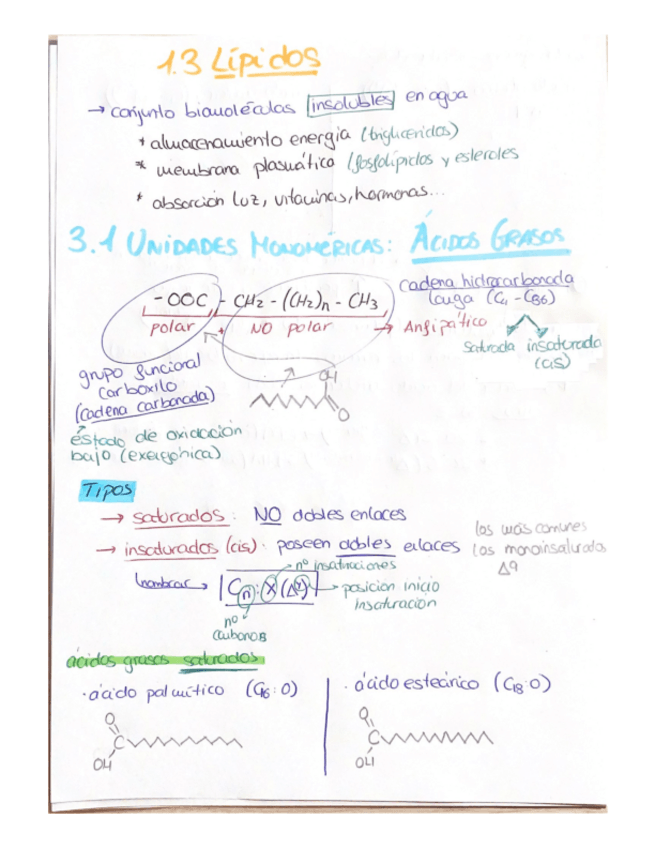 1.3 Lípidos
→ conjunto biomoléculas insolubles en agua
* almacenamiento energía (triglicéridos)
* membrana plasmática (fosfolípidos y esteroles
* absorción luz, vitaminas, hormonas...
3.1 UNIDADES MONOMÉRICAS: ÁCIDOS GRASOS
-OOC - CH2 - (CH2)n - CH3
polar + NO polar → Anfipático
cadena hidrocarbonada
larga (C4 - C36)
saturada insaturada
(cis)
grupo funcional
carboxilo
(cadena carbonada)
OH
O
estado de oxidación
bajo (exergónica)
TIPOS
→ saturados: NO dobles enlaces
→ insaturados (cis): poseen dobles enlaces
los más comunes
los monoinsaturados
Δ9
nº insaturaciones
nombrar → Cn:X(Δy) → posición inicio
insaturación
nº
carbonos
ácidos grasos saturados
· ácido palmítico (C16:0)
O
C
OH
· ácido esteárico (C18:0)
O
C
OH